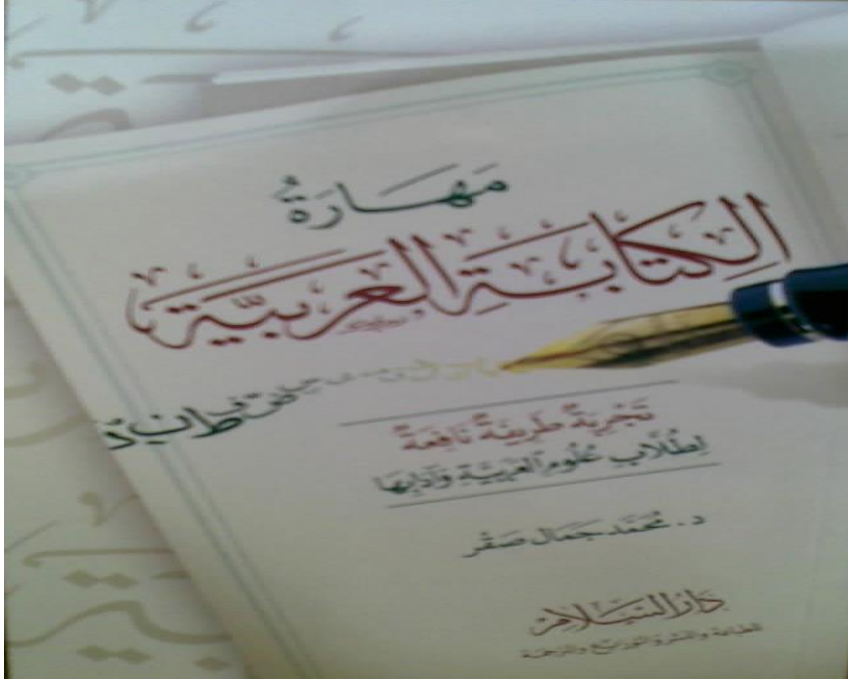 مَهَارَةُ
الْكِتَابَةِ الْعَرَبِيَّةِ
تَجْرِبَةٌ طَرِيفَةٌ نَافِعَةٌ
لِطُلَّابِ عُلُومِ الْعَرَبِيَّةِ وَآدَابِهَا
د. مُحَمَّد جَمَال صَقْر
دَارُ السَّلَامِ
للطباعة والنشر والتوزيع والترجمة